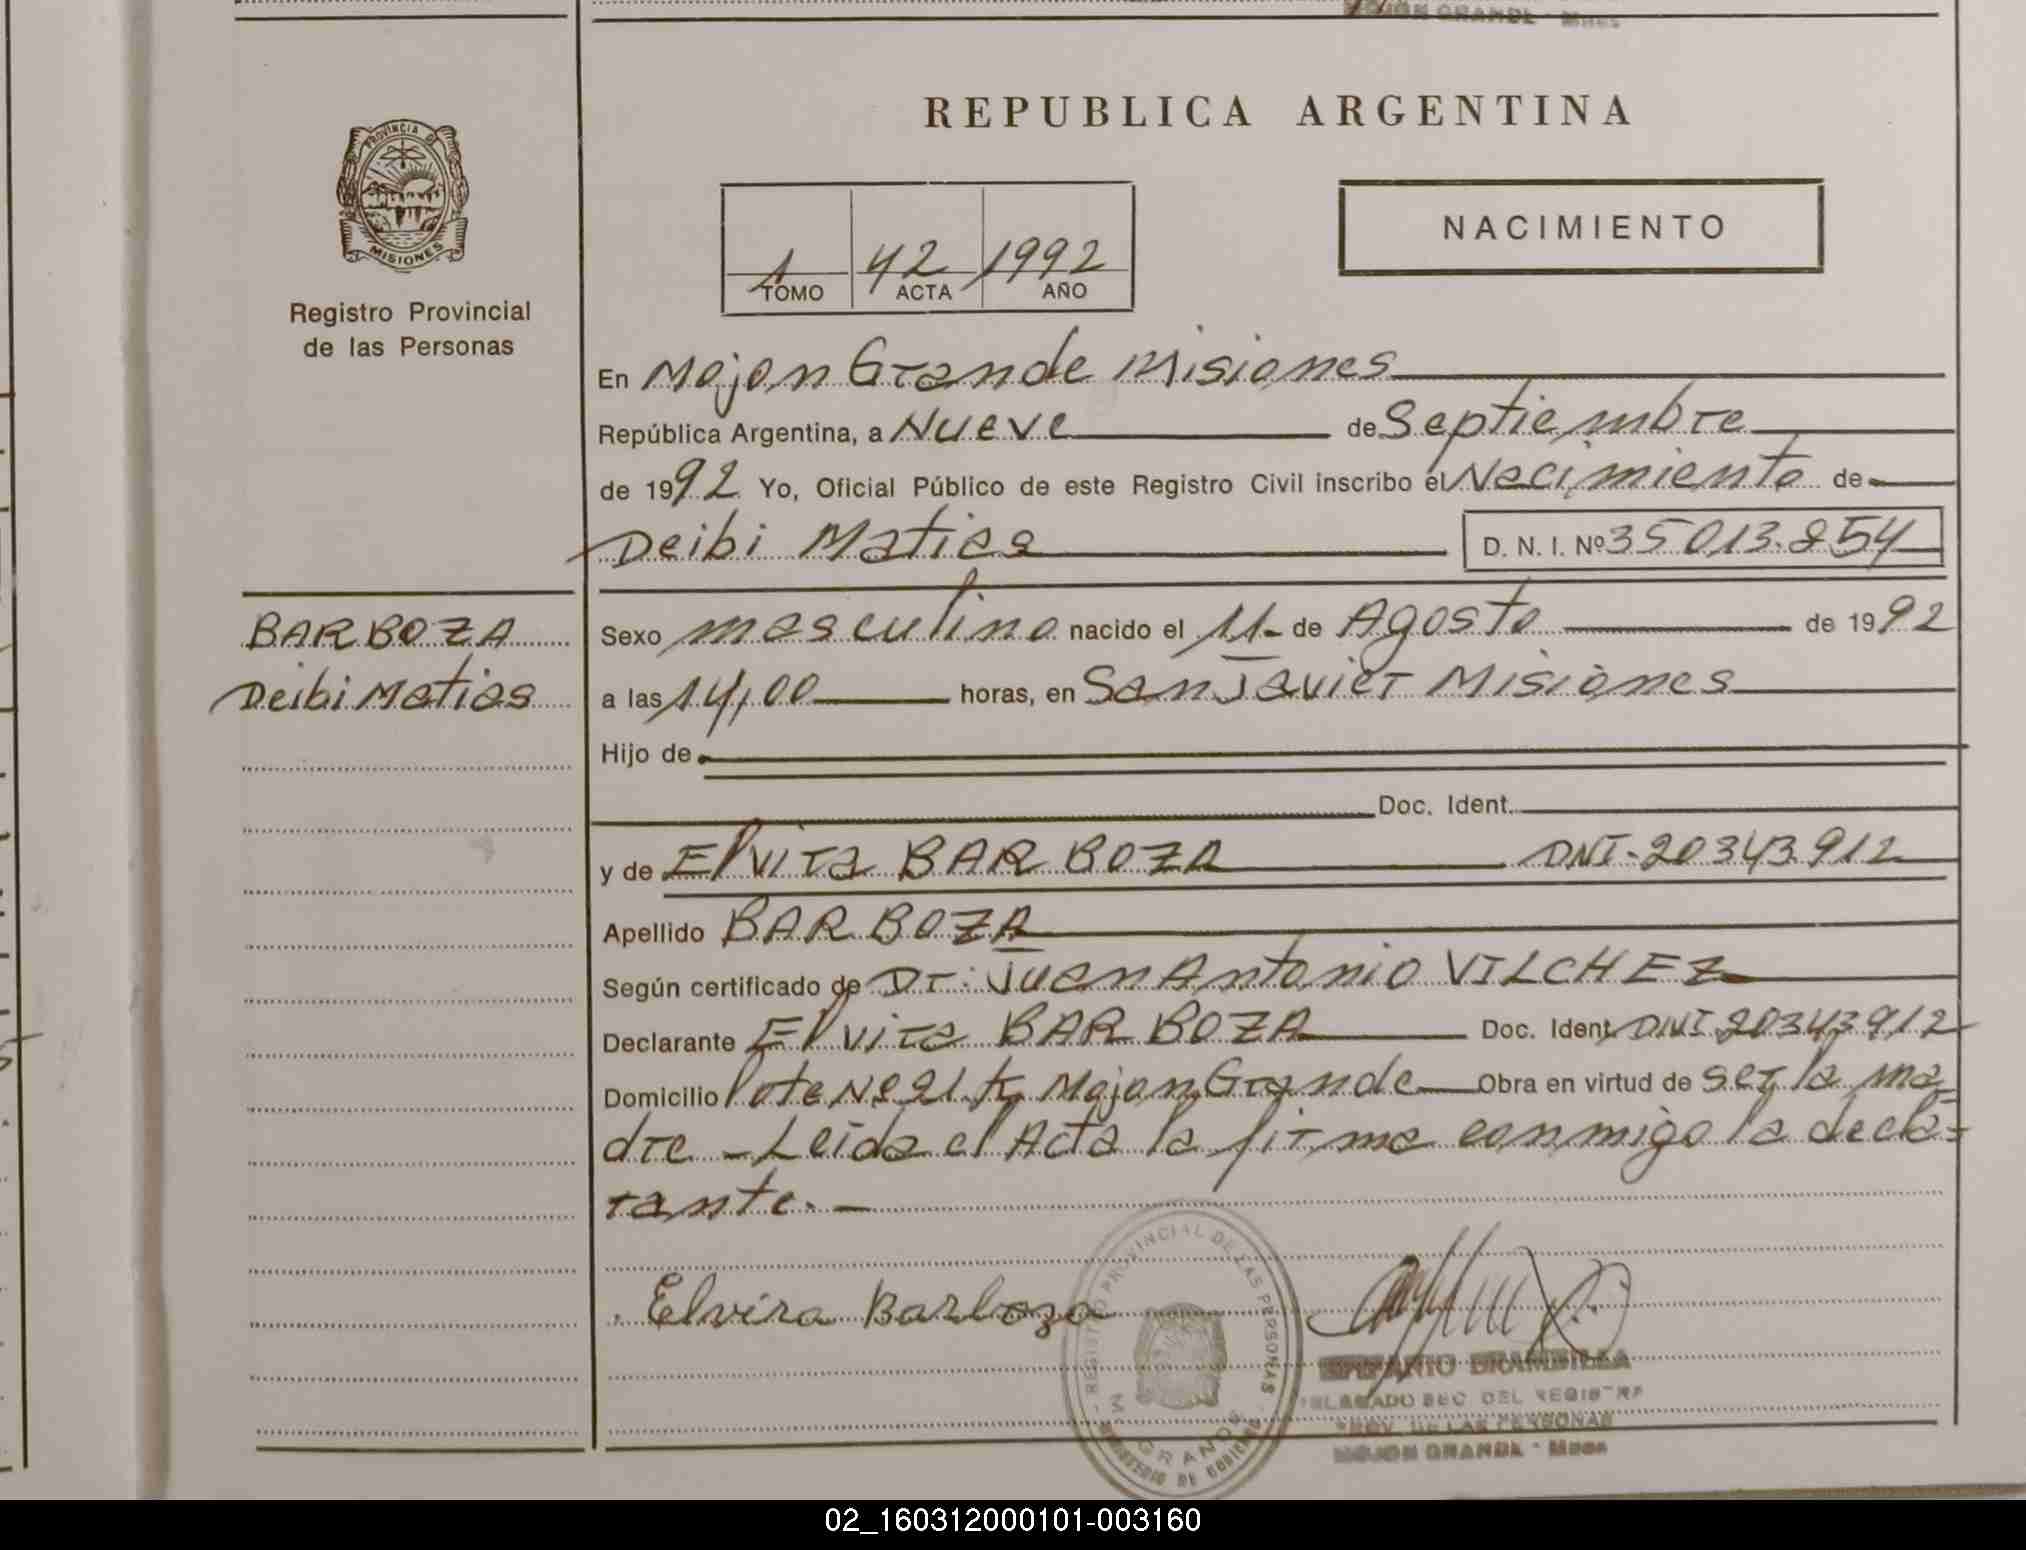 MOJON GRANDE - Mnes
REPUBLICA ARGENTINA
PROVINCIA DE
MISIONES
NACIMIENTO
1 42 1992
TOMO ACTA AÑO
Registro Provincial
de las Personas
En Mojon Grande Misiones
República Argentina, a Nueve de Septiembre
de 1992 Yo, Oficial Público de este Registro Civil inscribo el Nacimiento de
Deibi Matias D. N. I. Nº 35013.854
BARBOZA
Deibi Matias
Sexo masculino nacido el 11- de Agosto de 1992
a las 14,00 horas, en San Javier Misiones
Hijo de
Doc. Ident.
y de Elvira BARBOZA DNI-20343912
Apellido BARBOZA
Según certificado de Dr: Juan Antonio VILCHEZ
Declarante Elvira BARBOZA Doc. Ident. DNI 20343912
Domicilio lote Nº 21 Mojon Grande Obra en virtud de ser la ma
dre - Leida el Acta la firma conmigo la decla=
rante.-
Elvira Barboza
REGISTRO PROVINCIAL DE LAS PERSONAS
M. GRANDE
MINISTERIO DE GOBIERNO
BRAMBILLA
DELEGADO SEC. DEL REGISTRO
PROV. DE LAS PERSONAS
MOJON GRANDE - Mnes
02_160312000101-003160